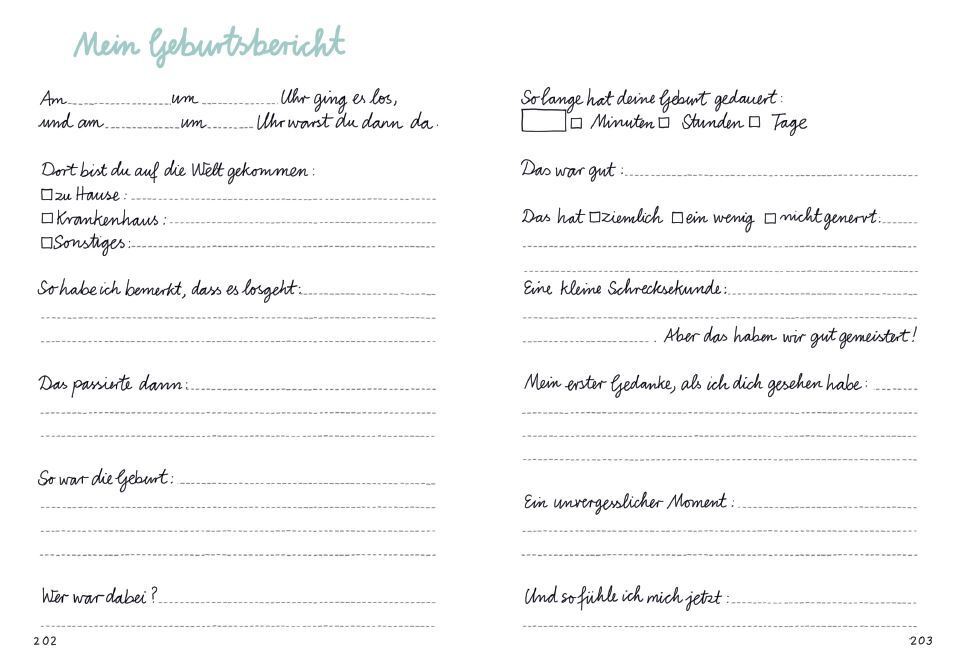 Mein Geburtsbericht
Am um Uhr ging es los,
und am um Uhr warst du dann da.
Dort bist du auf die Welt gekommen:
zu Hause:
Krankenhaus:
Sonstiges:
So habe ich bemerkt, dass es losgeht:
Das passierte dann:
So war die Geburt:
Wer war dabei?
202
So lange hat deine Geburt gedauert:
Minuten Stunden Tage
Das war gut:
Das hat ziemlich ein wenig nicht genervt:
Eine kleine Schrecksekunde:
. Aber das haben wir gut gemeistert!
Mein erster Gedanke, als ich dich gesehen habe:
Ein unvergesslicher Moment:
Und so fühle ich mich jetzt:
203